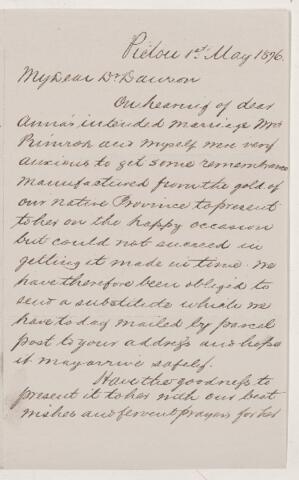 Pictou 1st May 1876.
My Dear Dr Dawson
On hearing of dear
Anna's intended marriage Mrs
Primrose and myself were very
anxious to get some remembrance
manufactured from the gold of
our native Province to present
to her on the happy occasion
but could not succeed in
getting it made in time. We
have therefore been obliged to
send a substitute which we
have to day mailed by parcel
post to your address and hope
it may arrive safely.
Have the goodness to
present it to her with our best
wishes and fervent prayers for her